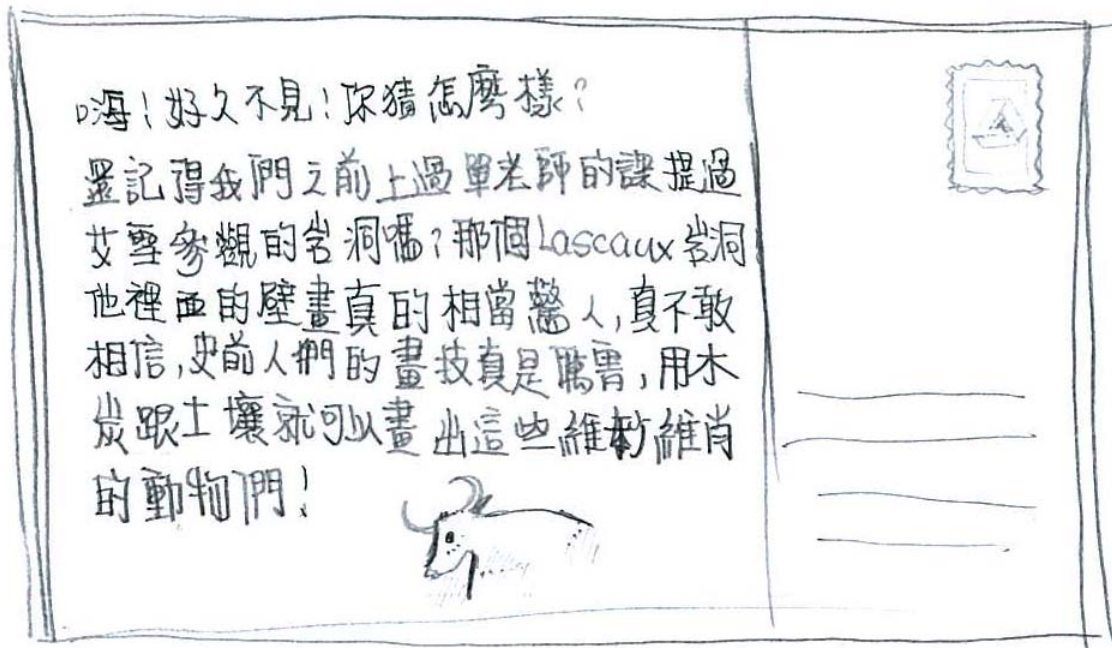 嗨!好久不見!你猜怎麼樣?
還記得我們之前上過單老師的課提過
艾要參觀的岩洞嗎?那個Lascaux岩洞
他裡面的壁畫真的相當驚人,真不敢
相信,史前人們的畫技真是厲害,用木
炭跟土壤就可以畫出這些維妙維肖
的動物們!